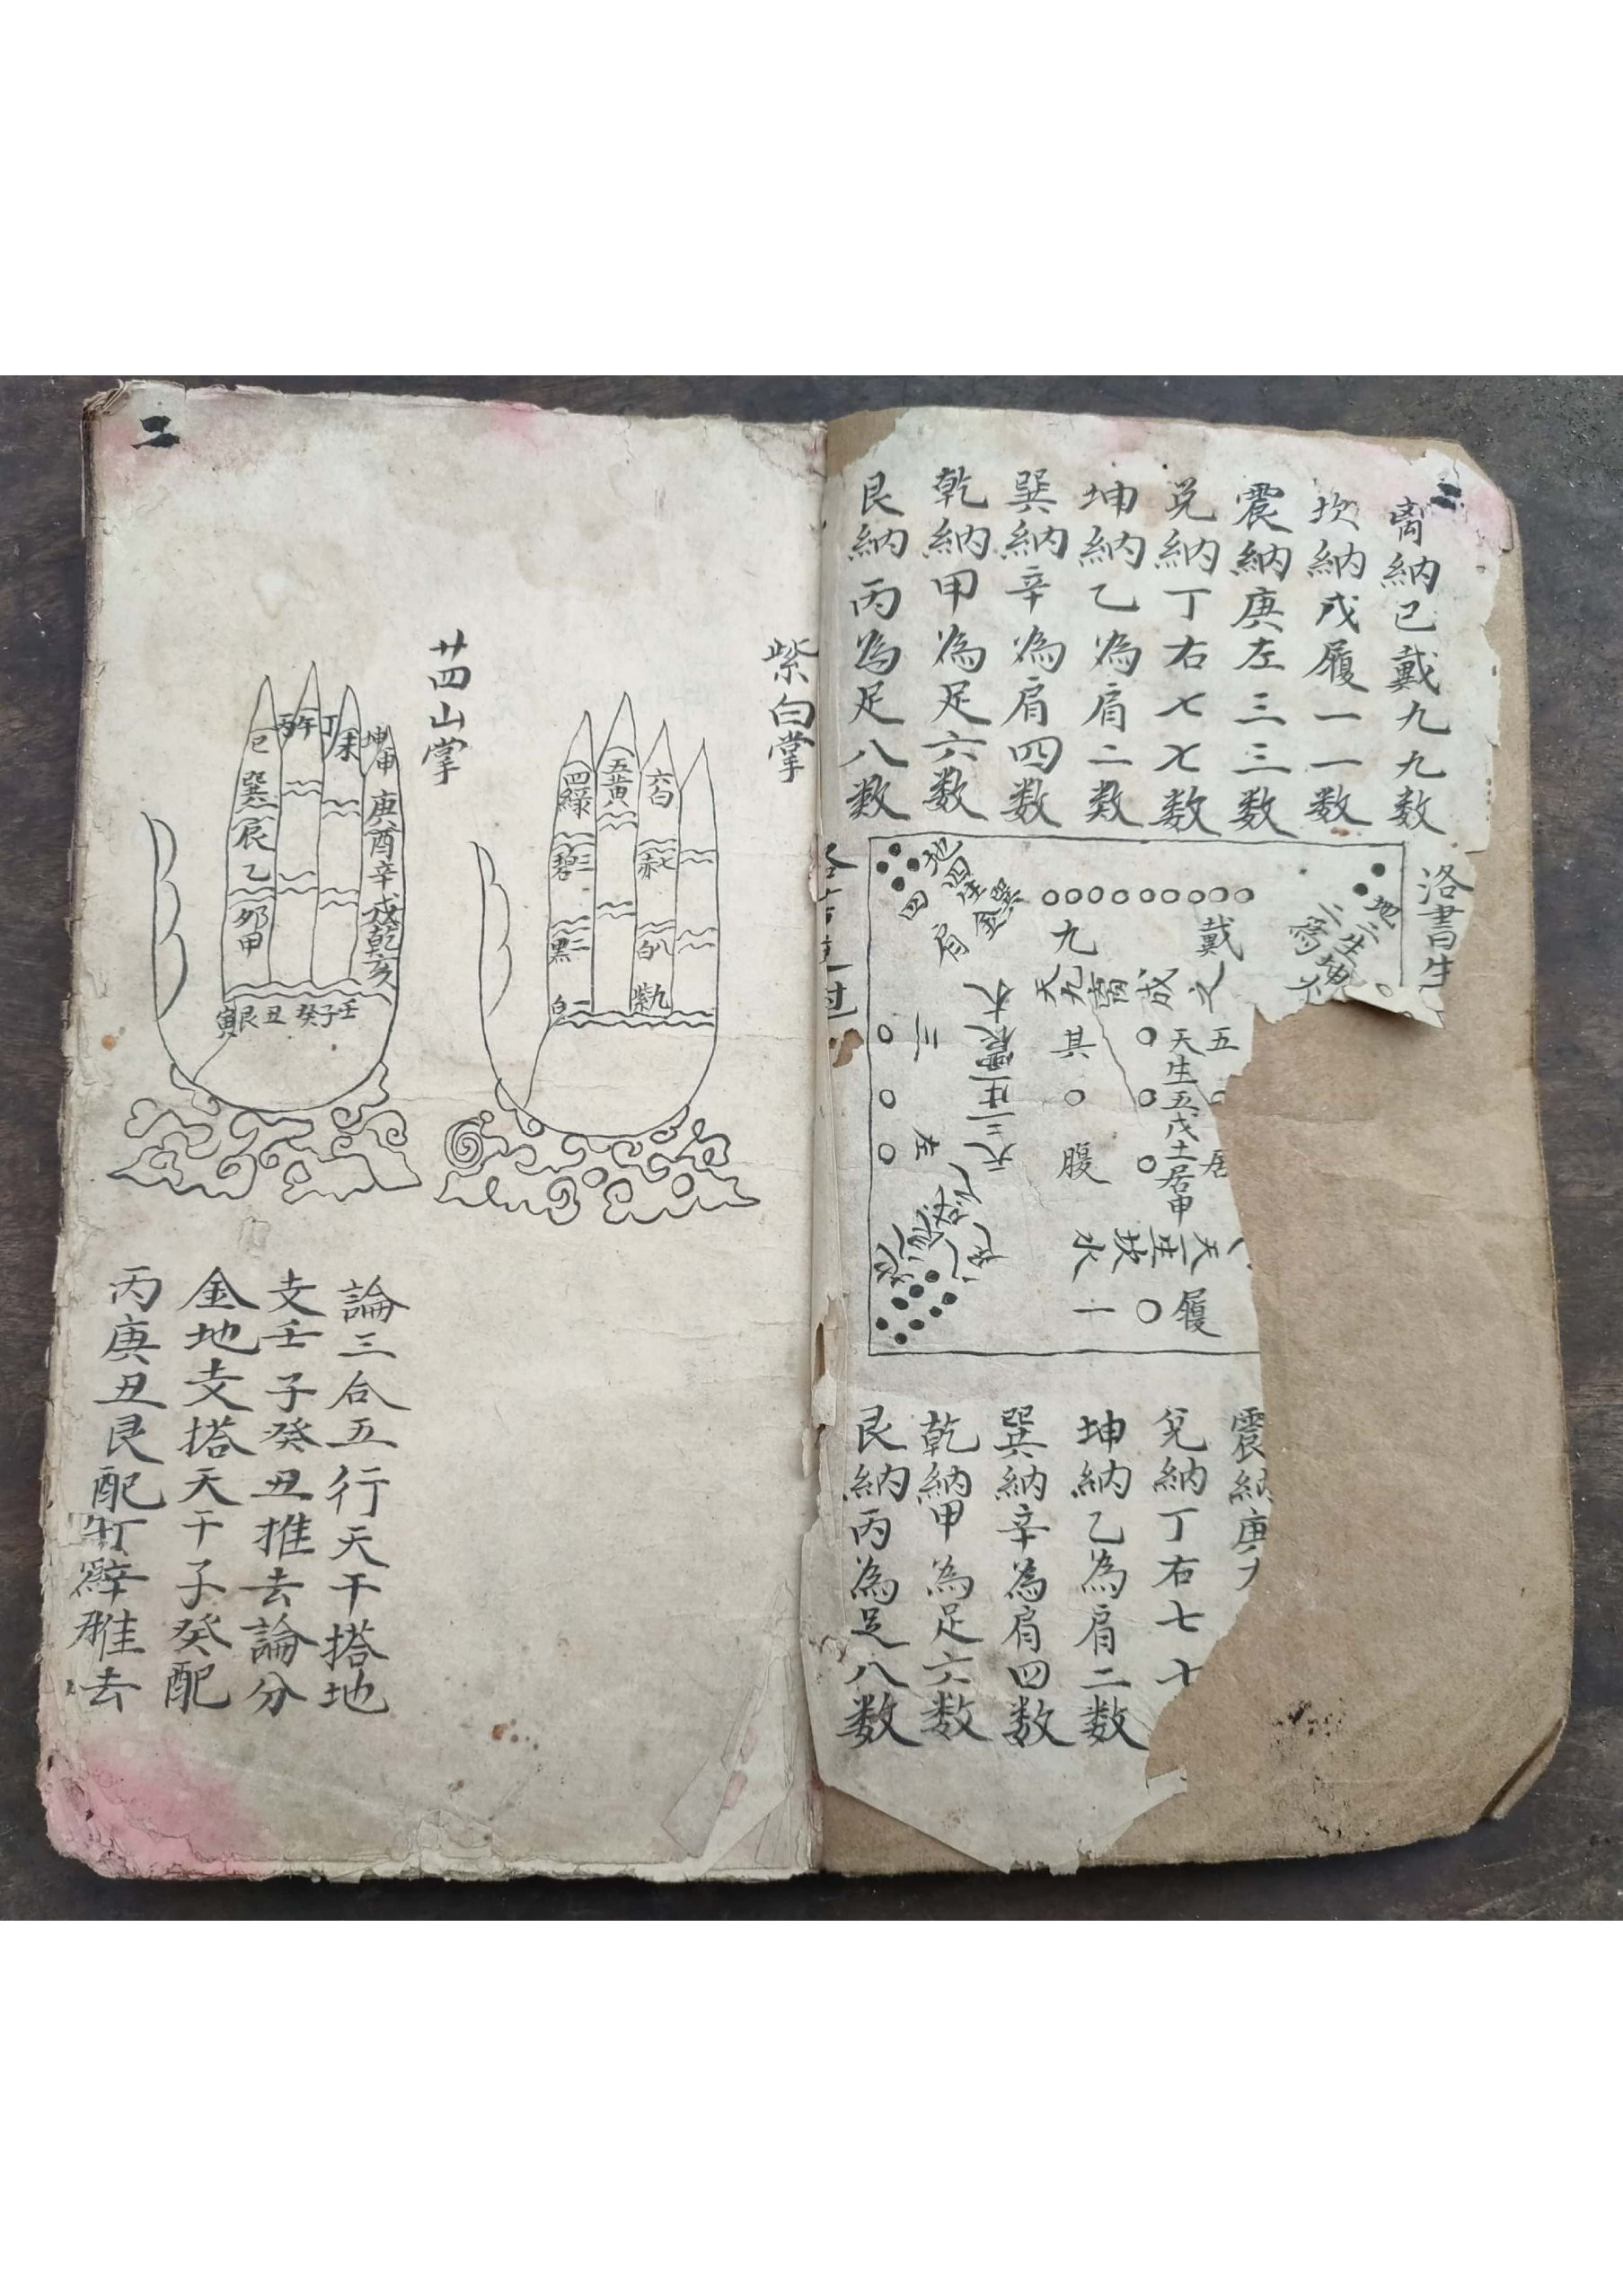 二
离納己戴九九数
坎納戊履一一数
震納庚左三三数
兑納丁右七七数
坤納乙為肩二数
巽納辛為肩四数
乾納甲為足六数
艮納丙為足八数
洛書生
地二生
二為
戴九
之成
天九
五居
天生五戊土居中
其腹
履一
天一生坎水
地四生金巽
四肩
三左
天三生震木
震納庚
兑納丁右七七
坤納乙為肩二数
巽納辛為肩四数
乾納甲為足六数
艮納丙為足八数
二
紫白掌
四綠
五黄
六白
三碧
七赤
二黑
八白
一白
九紫
廿四山掌
巳
丙午
丁未
坤申
巽
辰
乙
卯
甲
庚
酉
辛
戌
乾
亥
寅艮丑癸子壬
論三合五行天干搭地
支壬子癸丑推去論分
金地支搭天干子癸配
丙庚丑艮配
去